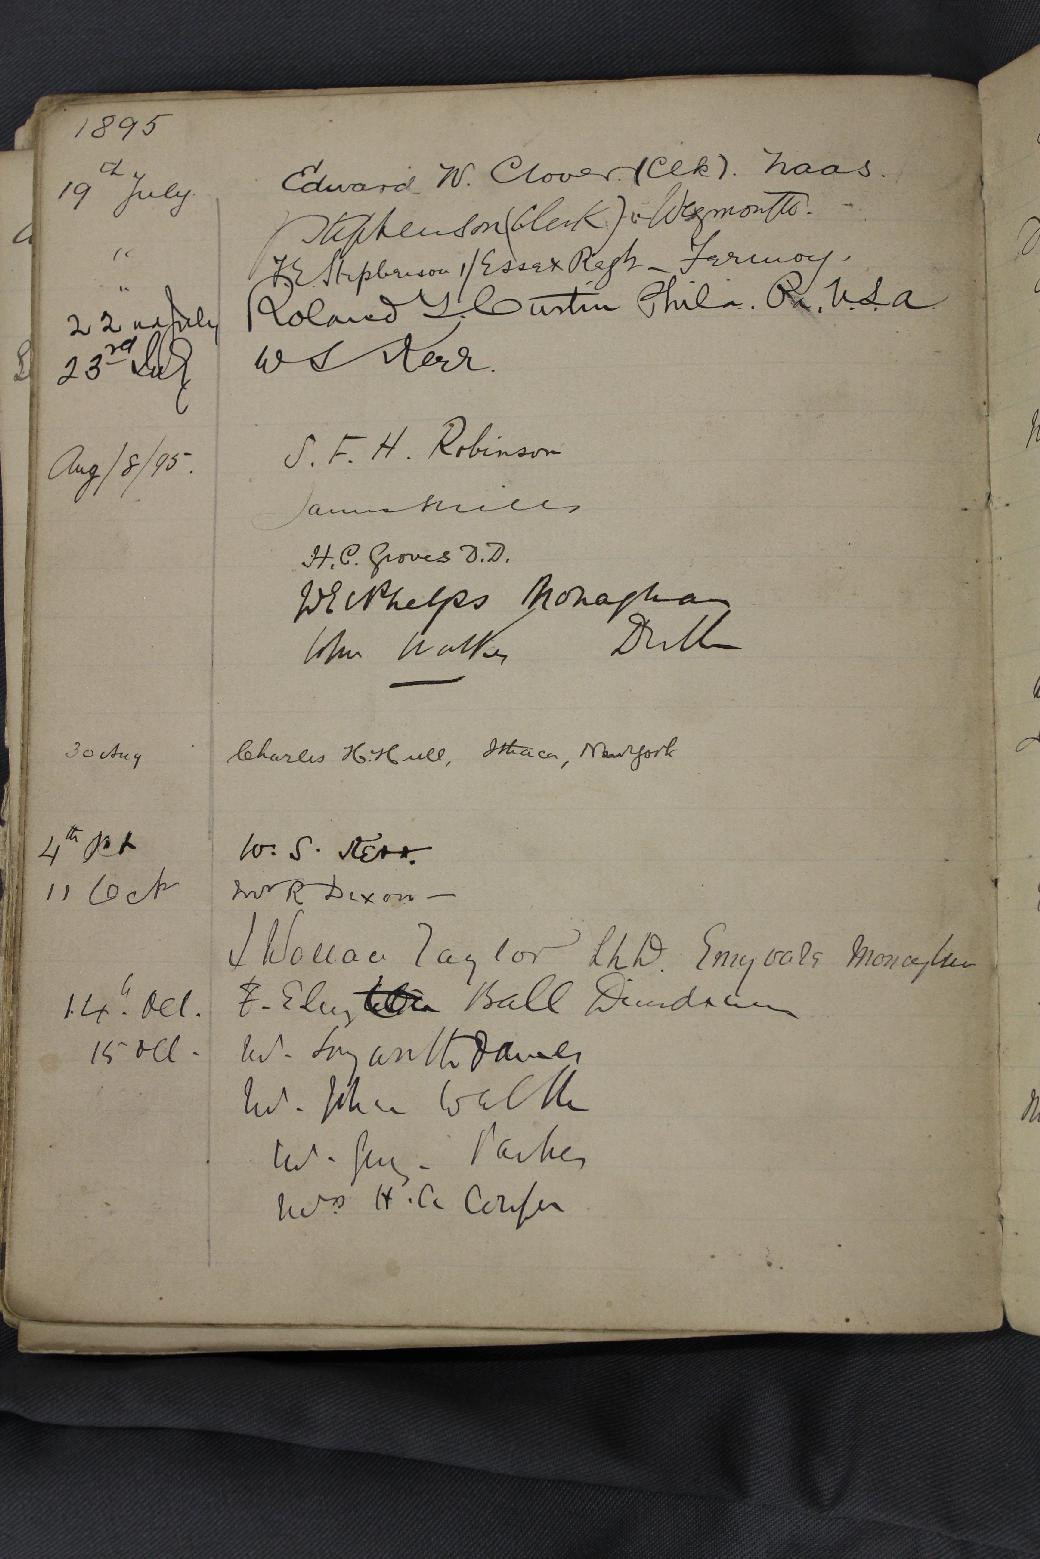 1895
19th July Edward W. Clover. (Clk). Naas.
Stephenson (Clerk) Weymouth.
" F E Stephenson 1/Essex Regt - Fermoy.
" 22nd July Roland G. Curtin Phila. Pa. U.S.A
23rd July W S Kerr.
Aug/8/95. S. F. H. Robinson
James Mills
H. C. Groves D.D.
Phelps Monaghan
John Walker
30 Aug Charles H. Hull, Ithaca, New York
4th Oct W. S. Kerr.
11 Oct R Dixon -
J Wallace Taylor LLD. Emyvale Monaghan
14th Oct. Ball Dundrum
15 Oct - James
Mr. John
Mr. Parker
Mrs H.